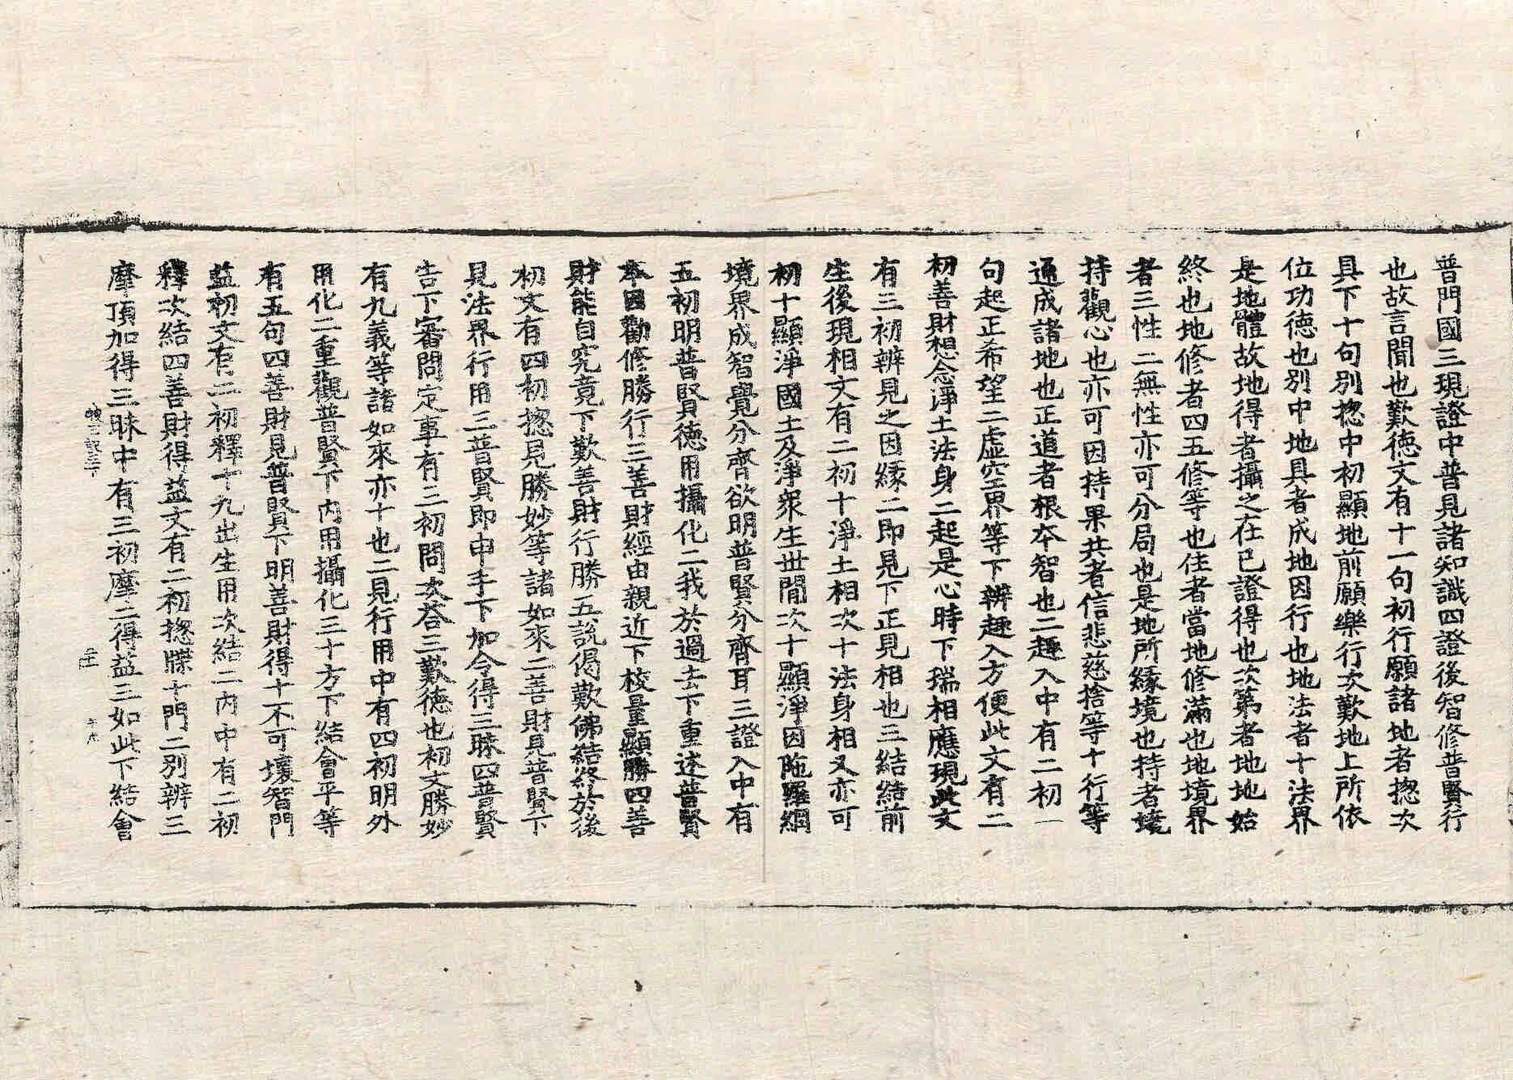 普門國三現證中普見諸知識四證後智修普賢行
也故言聞也歎德文有十一句初行願諸地者揔次
具下十句別揔中初顯地前願樂行次歎地上所依
位功德也別中地具者成地因行也地法者十法界
是地體故地得者攝之在已證得也次第者地地始
終也地修者四五修等也住者當地修滿也地境界
者三性二無性亦可分局也是地所緣境也持者境
持觀心也亦可因持果共者信悲慈捨等十行等
通成諸地也正道者根本智也二趣入中有二初一
句起正希望二虛空界等下辨趣入方便此文有二
初善財想念淨土法身二起是心時下瑞相應現此文
有三初辨見之因緣二即見下正見相也三結結前
生後現相文有二初十淨土相次十法身相又亦可
初十顯淨國土及淨衆生世間次十顯淨因陁羅網
境界成智覺分齊欲明普賢分齊耳三證入中有
五初明普賢德用攝化二我於過去下重述普賢
本因勸修勝行三善財經由親近下校量顯勝四善
財能自究竟下歎善財行勝五說偈歎佛結終於後
初文有四初揔見勝妙等諸如來二善財見普賢下
見法界行用三普賢即申手下加令得三昧四普賢
告下審問定事有三初問次荅三歎德也初文勝妙
有九義等諸如來亦十也二見行用中有四初明外
用化二重觀普賢下內用攝化三十方下結會平等
有五句四善財見普賢下明善財得十不可壞智門
益初文有二初釋十九出生用次結二內中有二初
釋次結四善財得益文有二初揔牒十門二別辨三
摩頂加得三昧中有三初摩二得益三如此下結會